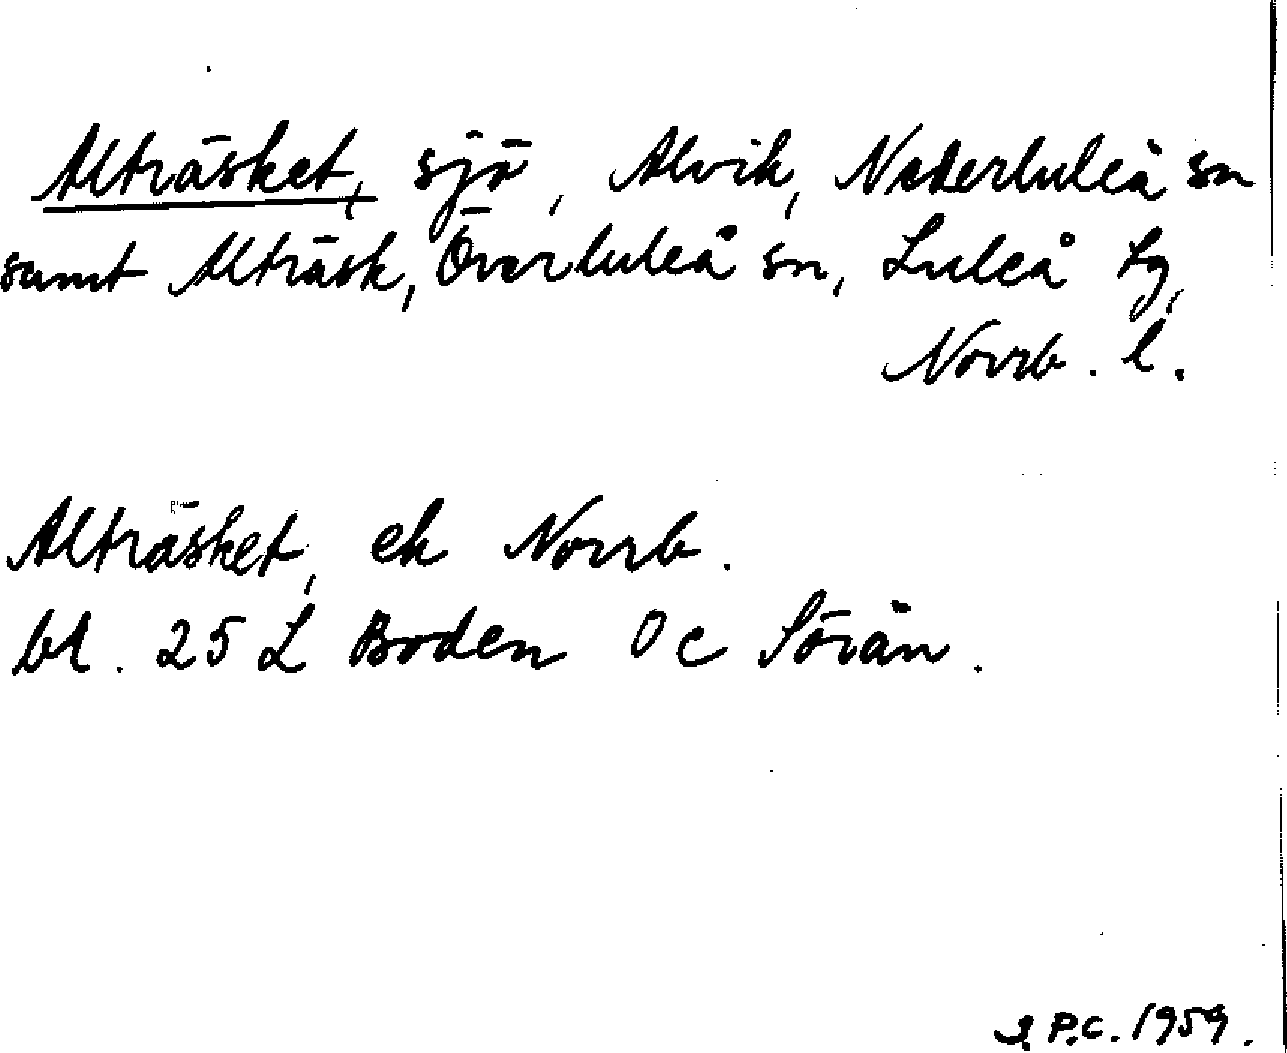 Alträsket, sjö, Alvik, Nederluleå sn
samt Alträsk, Överluleå sn, Luleå tg,
Norrb. l.
Alträsket, ek Norrb.
bl. 25 L Boden 0 c Sörån.
P.C. 1959.